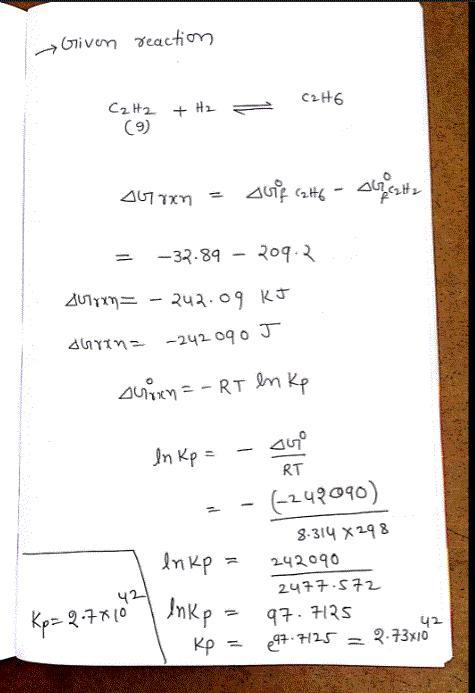 → Given reaction
C2H2 + H2 ⇌ C2H6
(g)
ΔG rxn = ΔG°f C2H6 - ΔG°f C2H2
= -32.89 - 209.2
ΔGrxn = - 242.09 KJ
ΔGrxn = -242090 J
ΔG°rxn = - RT ln Kp
ln Kp = - ΔG°/RT
= - (-242090)/8.314 x 298
ln Kp = 242090/2477.572
ln Kp = 97.7125
Kp = e^97.7125 = 2.73x10^42
Kp = 2.7x10^42